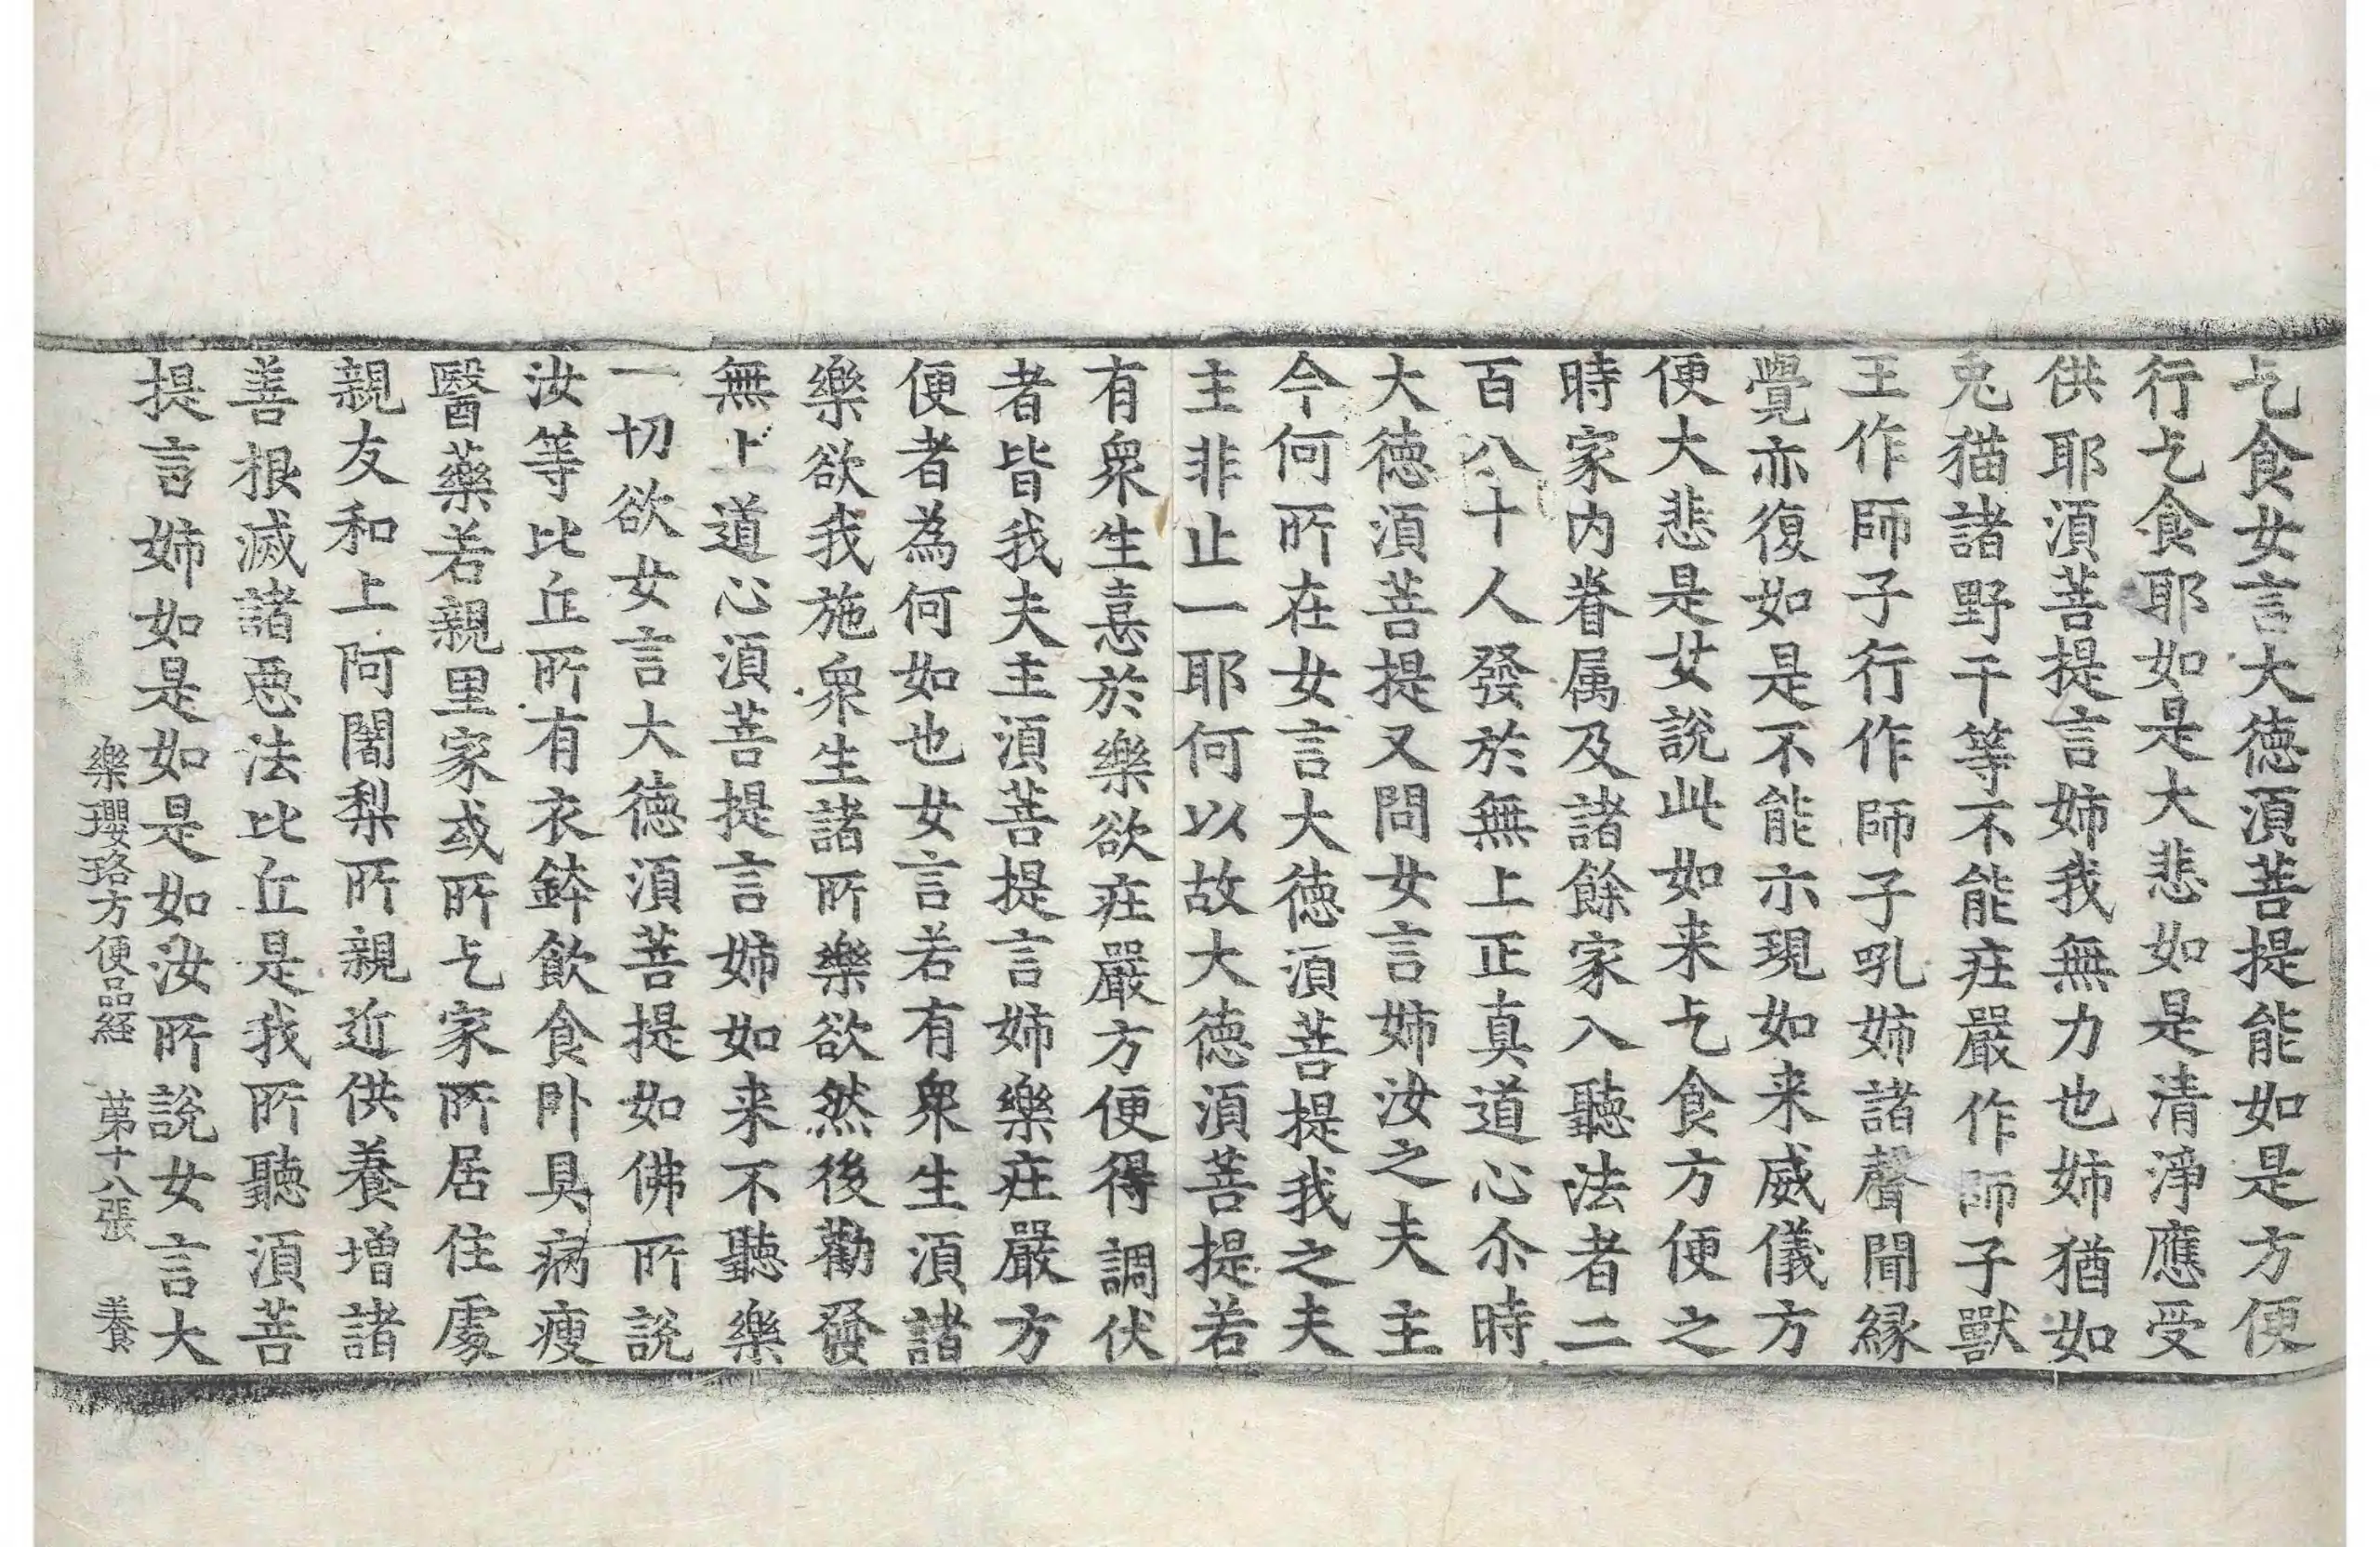 乞食女言大徳湏菩提能如是方便
行乞食耶如是大悲如是清淨應受
供耶湏菩提言姉我無力也姉猶如
兎猫諸野干等不能庄嚴作師子獸
王作師子行作師子吼姉諸聲聞縁
覺亦復如是不能示現如来威儀方
便大悲是女說此如来乞食方便之
時家内眷属及諸餘家入聽法者二
百八十人發於無上正真道心尒時
大徳湏菩提又問女言姉汝之夫主
今何所在女言大徳湏菩提我之夫
主非止一耶何以故大徳湏菩提若
有衆生憙於樂欲庄嚴方便得調伏
者皆我夫主湏菩提言姉樂庄嚴方
便者為何如也女言若有衆生湏諸
樂欲我施衆生諸所樂欲然後勸發
無上道心湏菩提言姉如来不聽樂
一切欲女言大徳湏菩提如佛所說
汝等比丘所有衣鉢飲食卧具病瘦
醫藥若親里家或所乞家所居住處
親友和上阿闍梨所親近供養增諸
善根滅諸悪法比丘是我所聽湏菩
提言姉如是如是如汝所說女言大
樂瓔珞方便品経　第十八張　養